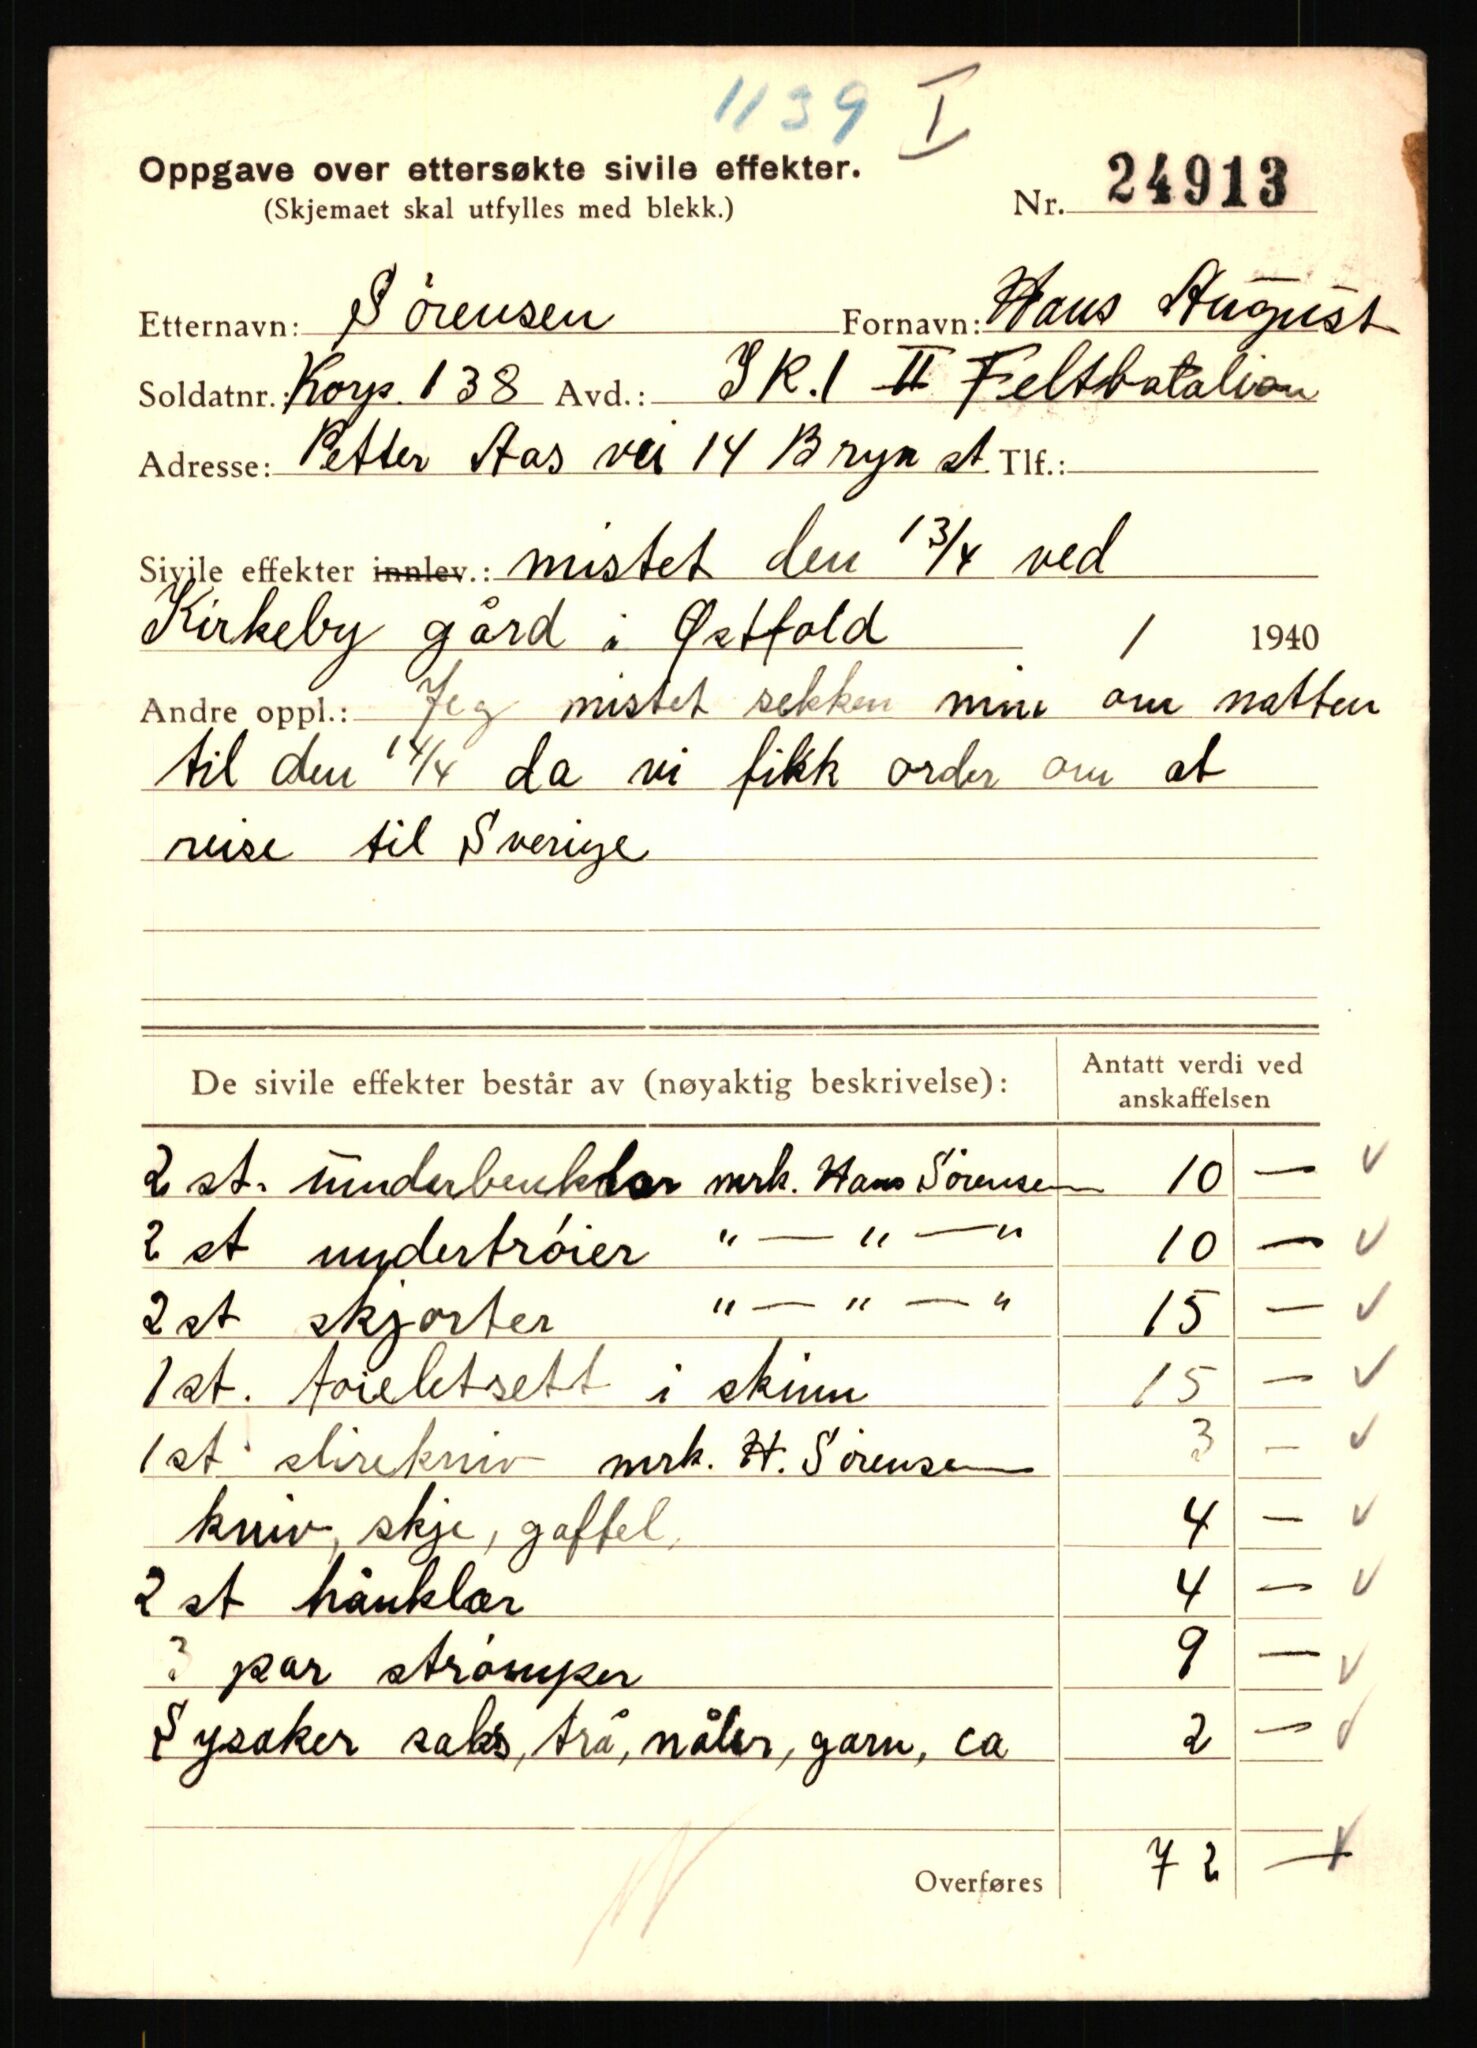 1139 I
Oppgave over ettersøkte sivile effekter.
(Skjemaet skal utfylles med blekk.)
Nr. 24913
Etternavn: Sörensen Fornavn: Hans August
Soldatnr.: Korp. 138 Avd.: IR.1 II Feltbatalion
Adresse: Petter Aas vei 14 Bryn st. Tlf.:
Sivile effekter innlev.: mistet den 13/4 ved
Kirkeby gård i Østfold / 1940
Andre oppl.: Jeg mistet sekken min om natten
til den 14/4 da vi fikk order om at
reise til Sverige
De sivile effekter består av (nøyaktig beskrivelse): Antatt verdi ved
anskaffelsen
2 st. underbenklær mrk. Hans Sörensen 10 —
2 st undertróier " — " — " 10 —
2 st skjorter " — " — " 15 —
1 st. toiletsett i skinn 15 —
1 st slirekniv mrk. H. Sörensen 3 —
kniv, skje, gaffel, 4 —
2 st hånklær 4 —
3 par strómper 9 —
Sysaker saks, trå, nåler, garn, ca 2 —
Overføres 72 —